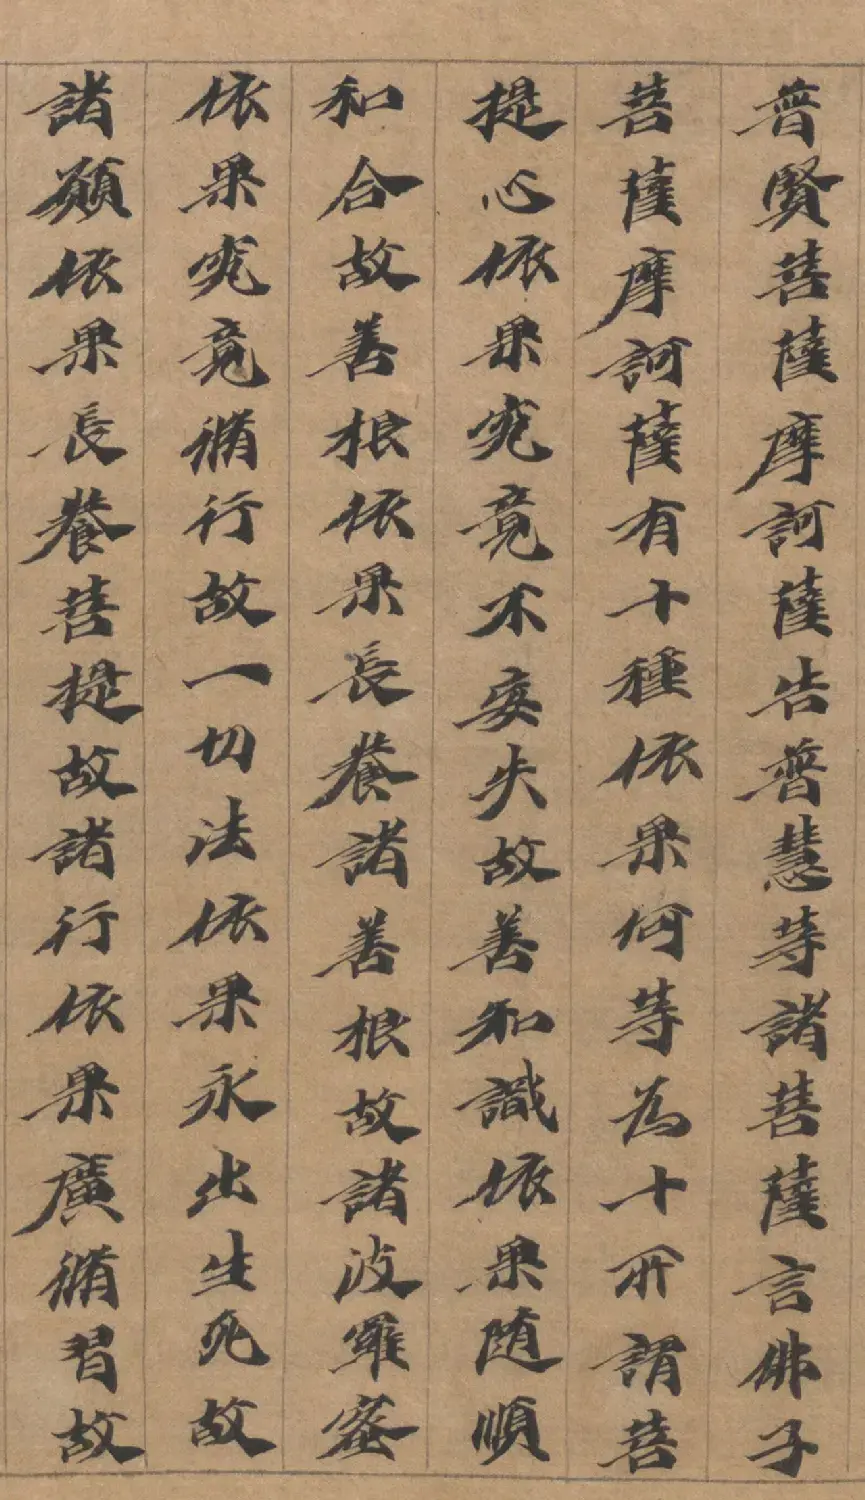 普賢菩薩摩訶薩告普慧等諸菩薩言佛子
菩薩摩訶薩有十種依果何等為十所謂菩
提心依果究竟不妄失故善知識依果随順
和合故善根依果長養諸善根故諸波羅蜜
依果究竟脩行故一切法依果永出生死故
諸願依果長養菩提故諸行依果廣脩習故